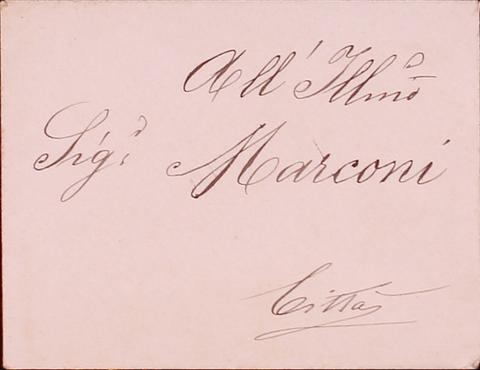 All' Illmo
Sigr Marconi
Città